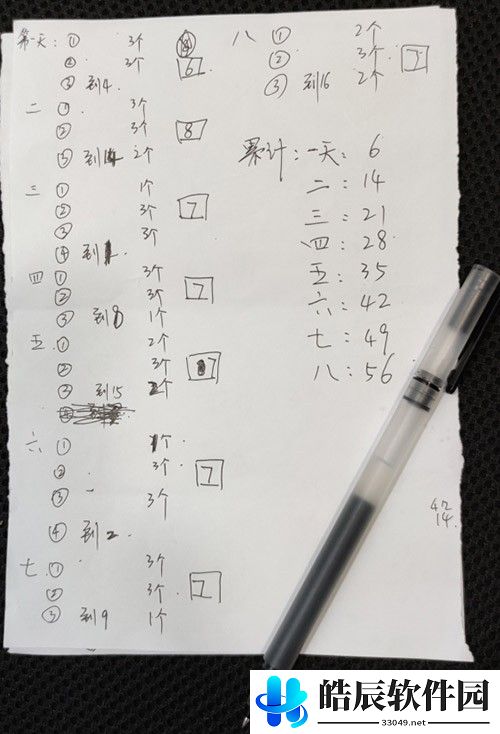 第一天: ① 3个
② 3个 6
③ 到4
二 ① 3个
② 3个 8
③ 到 2个
三 ① 1个
② 3个 7
③ 3个
④ 到
四 ① 3个
② 3个 7
③ 到8 1个
五 ① 2个
② 3个 7
③ 到15 2个
六 ① 1个
② 3个 7
③ 3个
④ 到2
七 ① 3个
② 3个 7
③ 到9 1个
八 ① 2个
② 3个 7
③ 到16 2个
累计: 一天: 6
二: 14
三: 21
四: 28
五: 35
六: 42
七: 49
八: 56
42
14
皓辰软件园
33049.net